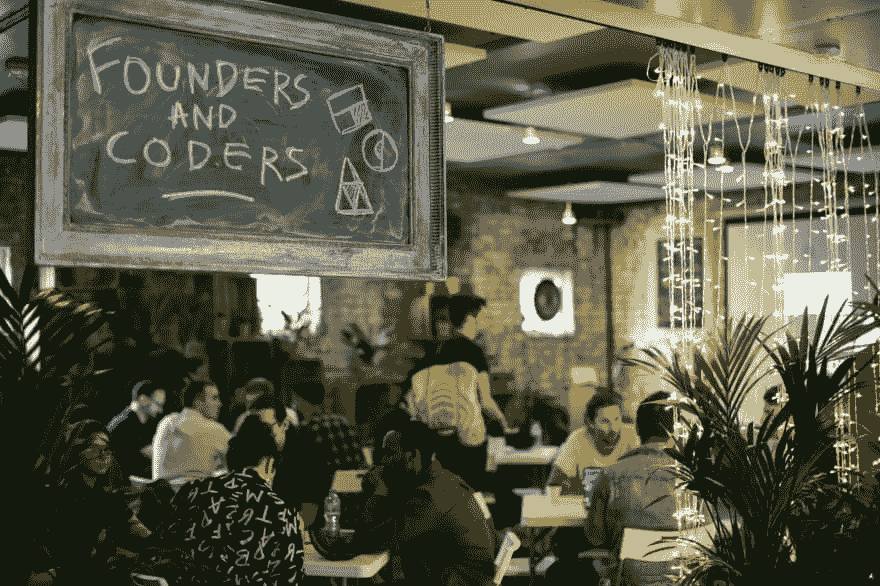 FOUNDERS
AND
CODERS